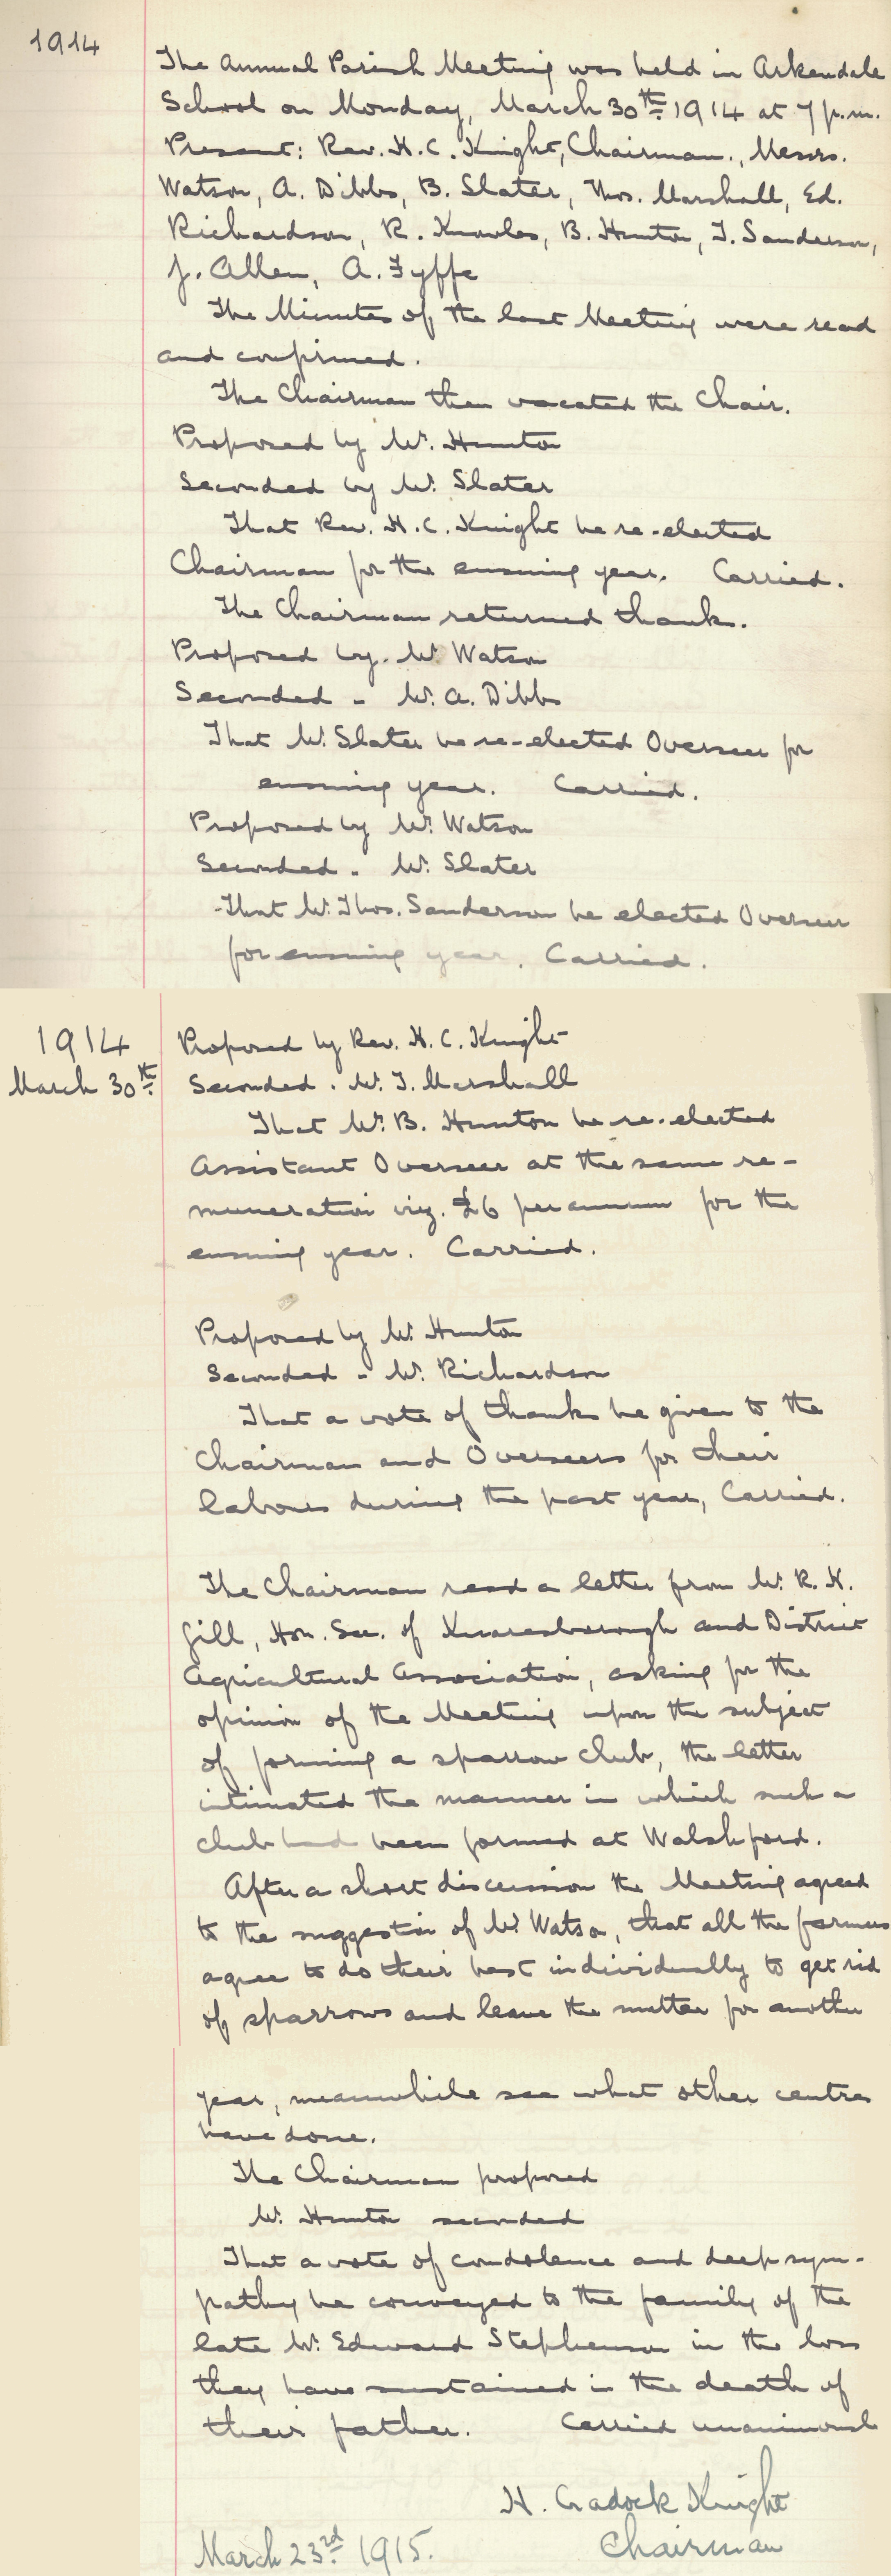 1914
The Annual Parish Meeting was held in Arkendale
School on Monday, March 30th 1914 at 7 p.m.
Present: Rev. H. C. Knight, Chairman., Messrs.
Watson, A. Dibbs, B. Slater, Thos. Marshall, Ed.
Richardson, R. Knowles, B. Hunton, T. Sanderson,
J. Allen, A. Fyffe
The Minutes of the last Meeting were read
and confirmed.
The Chairman then vacated the Chair.
Proposed by Mr. Hunton
Seconded by Mr. Slater
That Rev. H. C. Knight be re-elected
Chairman for the ensuing year. Carried.
The Chairman returned thanks.
Proposed by. Mr Watson
Seconded - Mr. A. Dibbs
That Mr. Slater be re-elected Overseer for
ensuing year. Carried.
Proposed by Mr. Watson
Seconded. Mr. Slater
That Mr. Thos. Sanderson be elected Overseer
for ensuing year. Carried.
1914
March 30th
Proposed by Rev. H. C. Knight
Seconded. Mr. T. Marshall
That Mr. B. Hunton be re-elected
Assistant Overseer at the same re-
muneration viz. £6 per annum for the
ensuing year. Carried.
Proposed by Mr. Hunton
Seconded - Mr. Richardson
That a vote of thanks be given to the
Chairman and Overseers for their
labours during the past year, Carried.
The Chairman read a letter from Mr. R. H.
Gill, Hon. Sec. of Knaresborough and District
Agricultural Association, asking for the
opinion of the Meeting upon the subject
of forming a sparrow club, the letter
intimated the manner in which such a
club had been formed at Walshford.
After a short discussion the Meeting agreed
to the suggestion of Mr Watson, that all the farmers
agree to do their best individually to get rid
of sparrows and leave the matter for another
year, meanwhile see what other centres
have done.
The Chairman proposed
Mr. Hunton seconded
That a vote of condolence and deep sym-
pathy be conveyed to the family of the
late Mr. Edward Stephenson in the loss
they have sustained in the death of
their father. Carried unanimously
H. Cradock Knight
Chairman
March 23rd 1915.